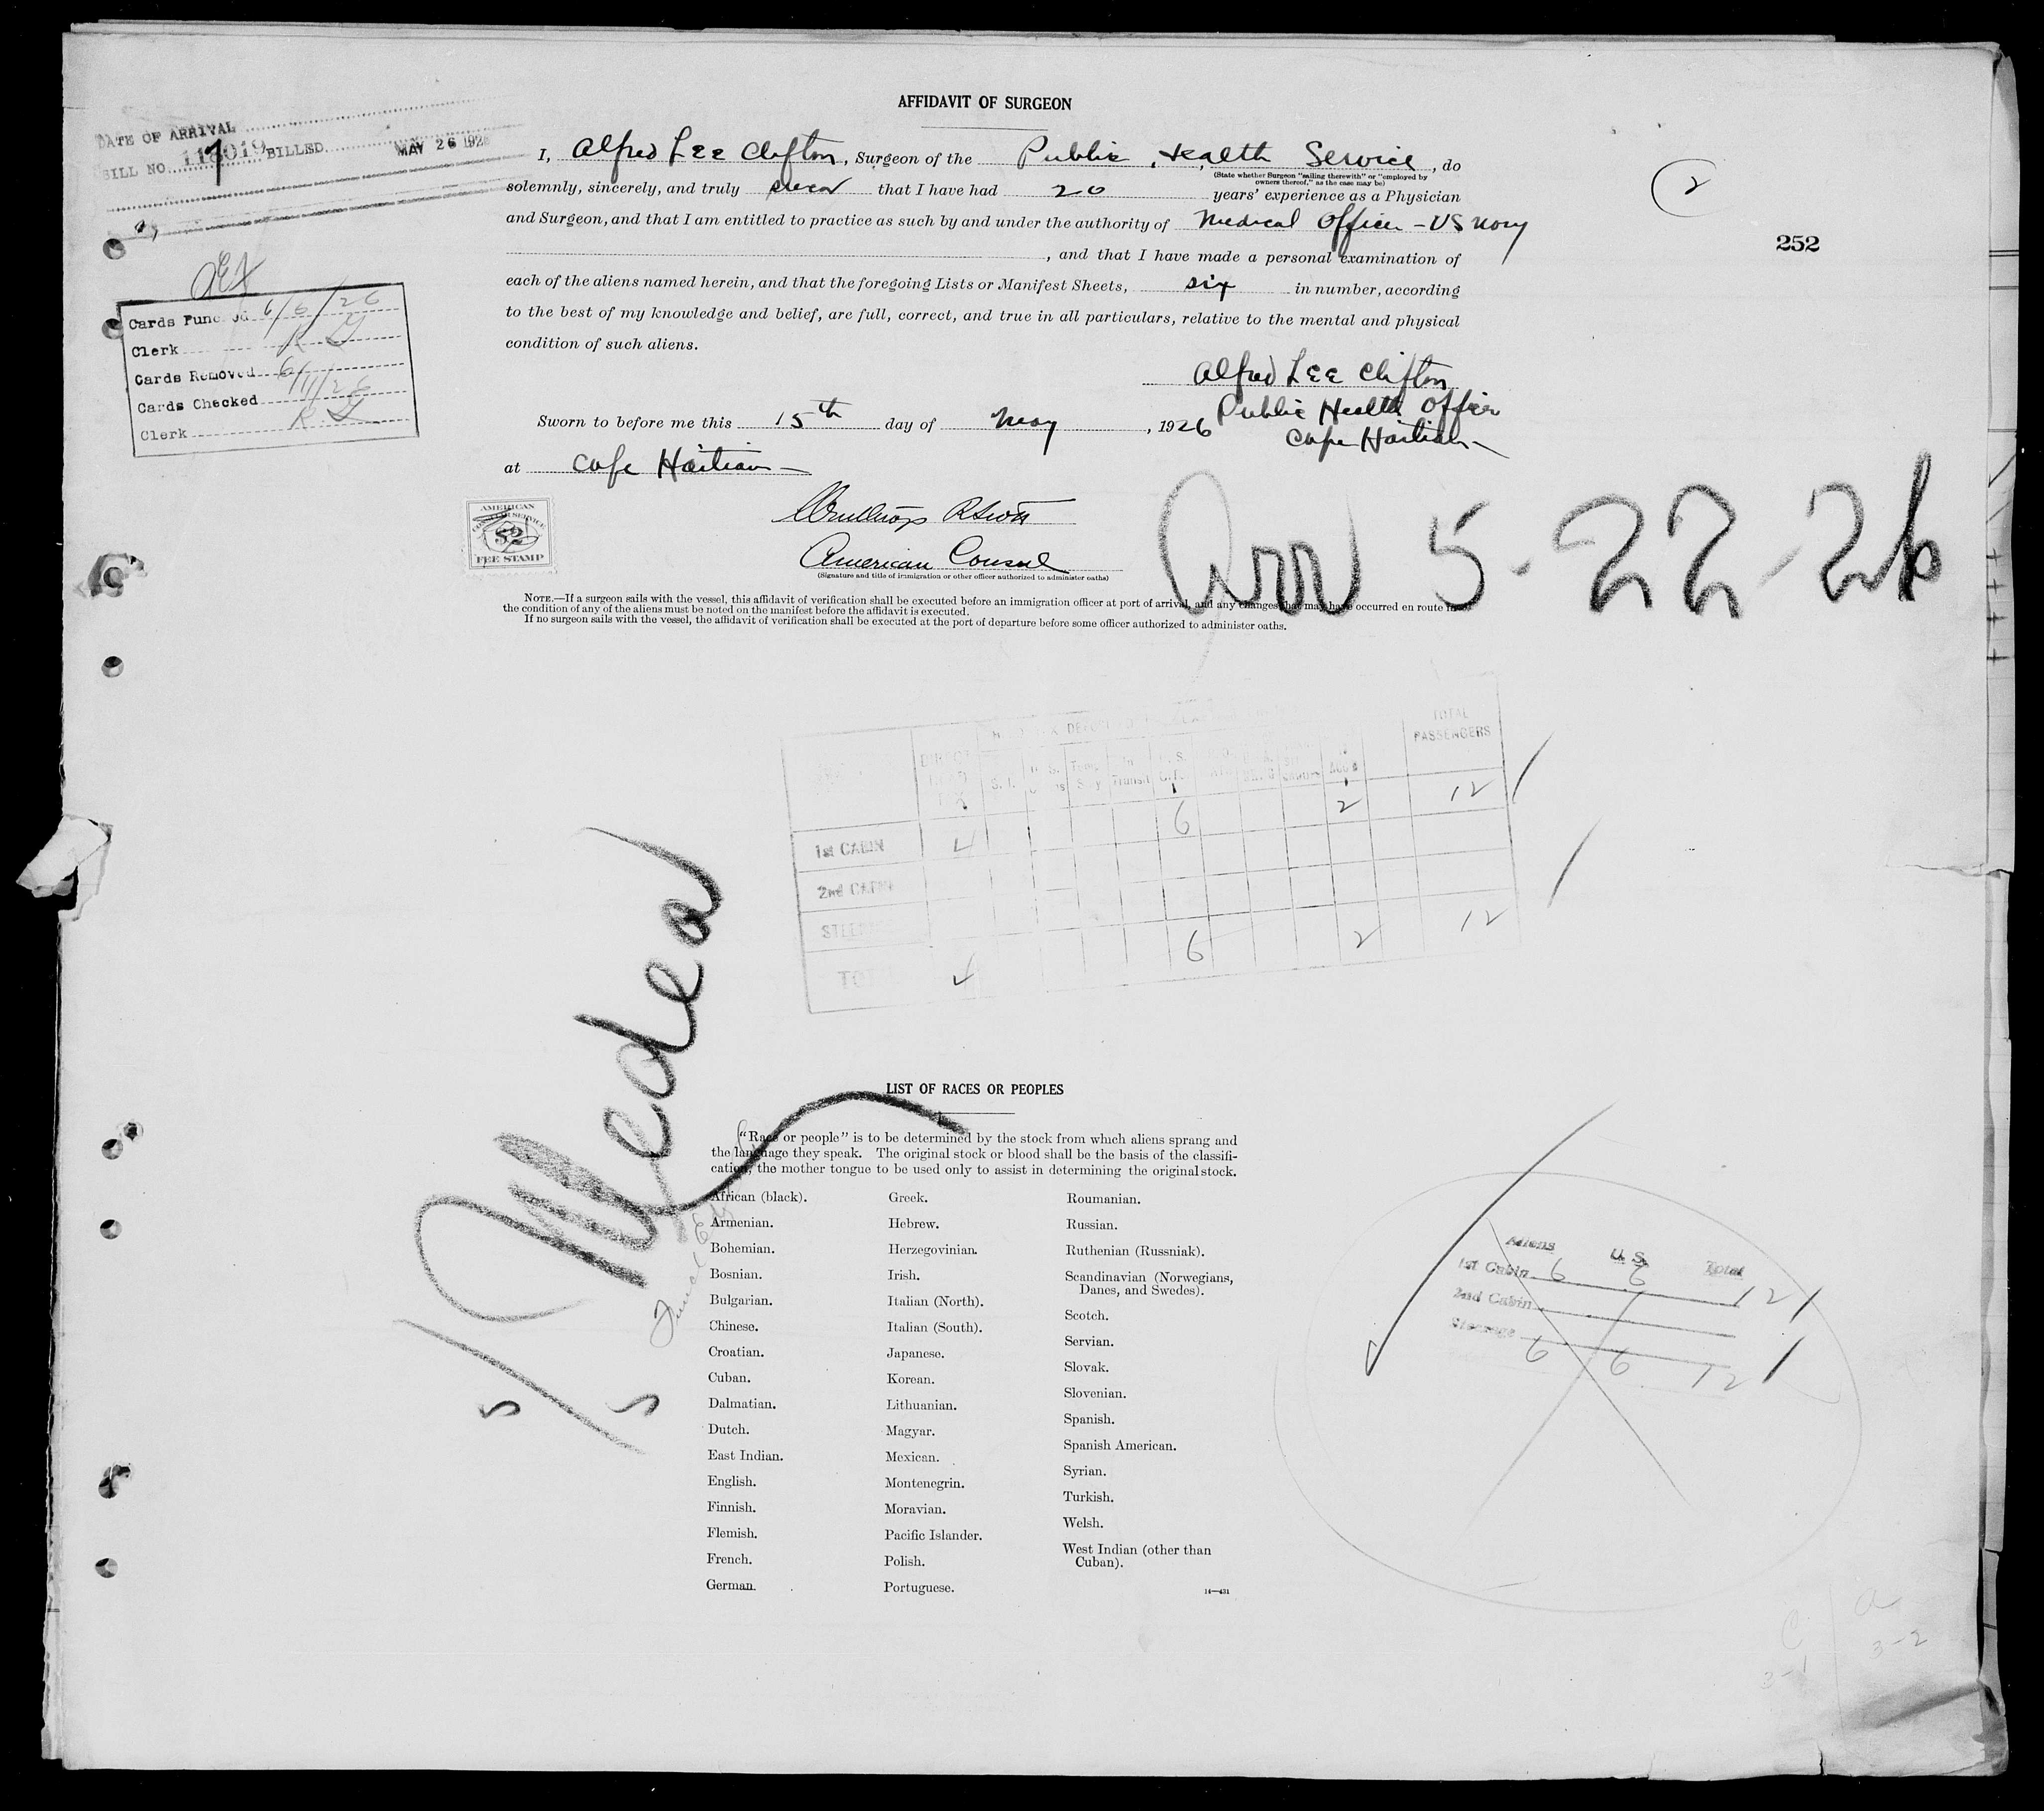 AFFIDAVIT OF SURGEON
DATE OF ARRIVAL
BILL NO. 118019 BILLED MAY 26 192
I, Alfred Lee Clifton, Surgeon of the Public Health Service, do
(State whether Surgeon "sailing therewith" or "employed by
owners thereof," as the case may be)
solemnly, sincerely, and truly swear that I have had 20 years' experience as a Physician
and Surgeon, and that I am entitled to practice as such by and under the authority of Medical Officer - US Navy
, and that I have made a personal examination of
each of the aliens named herein, and that the foregoing Lists or Manifest Sheets, six in number, according
to the best of my knowledge and belief, are full, correct, and true in all particulars, relative to the mental and physical
condition of such aliens.
2
252
Cards Punched 6/6/26
Clerk R G
Cards Removed 6/11/26
Cards Checked
Clerk R G
Alfred Lee Clifton
Public Health Officer
Cape Haitian
Sworn to before me this 15th day of May, 1926
at Cape Haitian
AMERICAN
CONSULAR SERVICE
$2
FEE STAMP
Winthrop R Scott
American Consul
(Signature and title of immigration or other officer authorized to administer oaths)
Arr 5-22-26
NOTE.—If a surgeon sails with the vessel, this affidavit of verification shall be executed before an immigration officer at port of arrival, and any changes that may have occurred en route in
the condition of any of the aliens must be noted on the manifest before the affidavit is executed.
If no surgeon sails with the vessel, the affidavit of verification shall be executed at the port of departure before some officer authorized to administer oaths.
TOTAL
PASSENGERS
DIRECT
Transit
6 2 12
1st CABIN 4
2nd CABIN
6 2 12
4
Medea
LIST OF RACES OR PEOPLES
"Race or people" is to be determined by the stock from which aliens sprang and
the language they speak. The original stock or blood shall be the basis of the classifi-
cation, the mother tongue to be used only to assist in determining the original stock.
African (black).
Armenian.
Bohemian.
Bosnian.
Bulgarian.
Chinese.
Croatian.
Cuban.
Dalmatian.
Dutch.
East Indian.
English.
Finnish.
Flemish.
French.
German.
Greek.
Hebrew.
Herzegovinian.
Irish.
Italian (North).
Italian (South).
Japanese.
Korean.
Lithuanian.
Magyar.
Mexican.
Montenegrin.
Moravian.
Pacific Islander.
Polish.
Portuguese.
Roumanian.
Russian.
Ruthenian (Russniak).
Scandinavian (Norwegians,
Danes, and Swedes).
Scotch.
Servian.
Slovak.
Slovenian.
Spanish.
Spanish American.
Syrian.
Turkish.
Welsh.
West Indian (other than
Cuban).
14—431
Aliens U. S. Total
1st Cabin 6 6 12
2nd Cabin
Steerage
6 6 12
C a
3-1 3-2
5 5